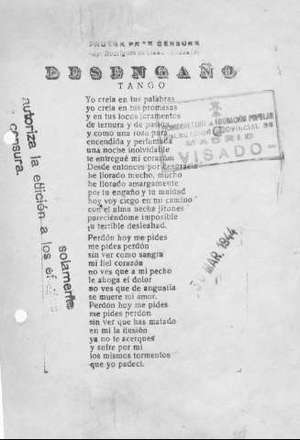 PRUEBA PARA CENSURA
DESENGAÑO
TANGO
Yo creía en tus palabras
yo creía en tus promesas
y en tus locos juramentos
de ternura y de pasión
y como una rosa pura
encendida y perfumada
una noche inolvidable
te entregué mi corazón
Desde entonces por desgracia
he llorado mucho, mucho
he llorado amargamente
por tu engaño y tu maldad
hoy voy ciego en tu camino
con el alma hecha jirones
pareciéndome imposible
tu terrible deslealtad.
Perdón hoy me pides
me pides perdón
sin ver como sangra
mi fiel corazón
no ves que a mi pecho
le ahoga el dolor
no ves que de angustia
se muere mi amor.
Perdón hoy me pides
me pides perdón
sin ver que has matado
en mi la ilusión
ya no te acerques
y sufre por mi
los mismos tormentos
que yo padecí.
EDUCACION POPULAR
PROVINCIAL DE
MADRID
VISADO
MAR. 1944
autoriza la edición a los
solamente
censura.